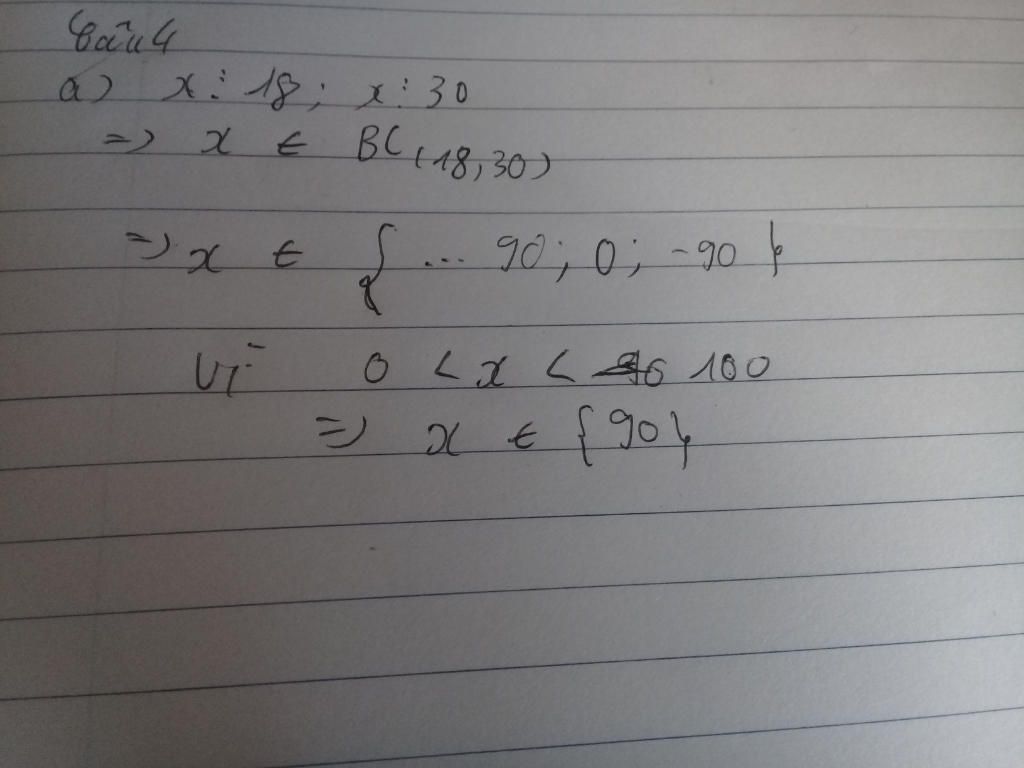 Câu 4
a) x ⋮ 18 ; x ⋮ 30
=> x ∈ BC(18,30)
=> x ∈ { ... 90 ; 0 ; -90 }
Vì 0 < x < 100
=> x ∈ {90}